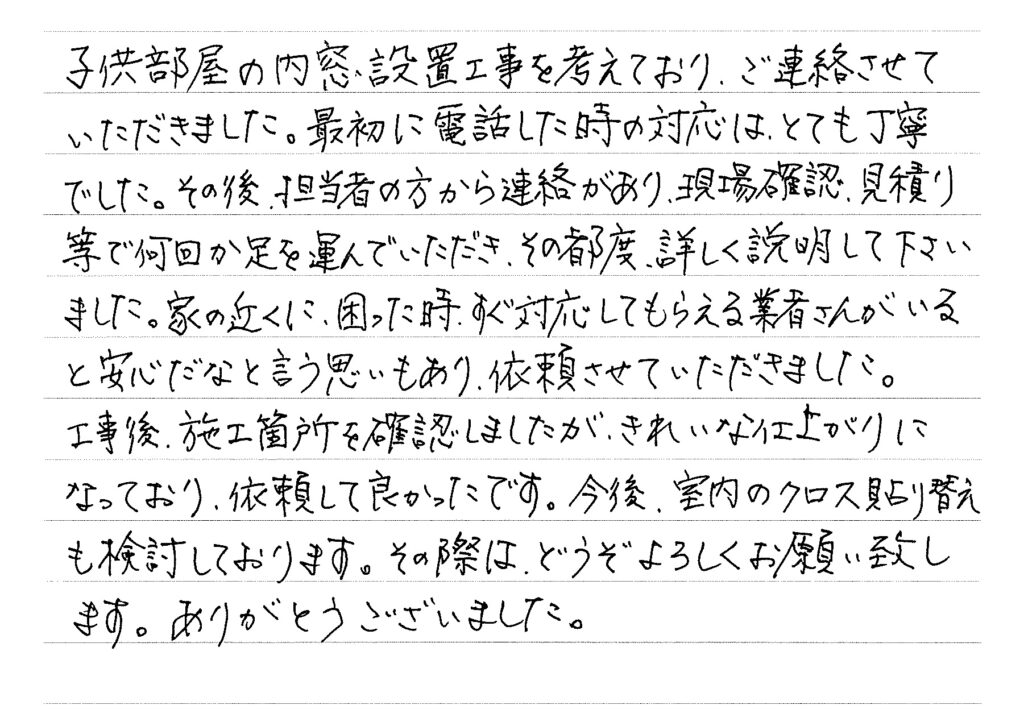 子供部屋の内窓設置工事を考えており、ご連絡させて
いただきました。最初に電話した時の対応は、とても丁寧
でした。その後、担当者の方から連絡があり、現場確認、見積り
等で何回か足を運んでいただき、その都度、詳しく説明して下さい
ました。家の近くに、困った時、すぐ対応してもらえる業者さんがいる
と安心だなと言う思いもあり、依頼させていただきました。
工事後、施工箇所を確認しましたが、きれいな仕上がりに
なっており、依頼して良かったです。今後、室内のクロス貼り替え
も検討しております。その際は、どうぞよろしくお願い致し
ます。ありがとうございました。